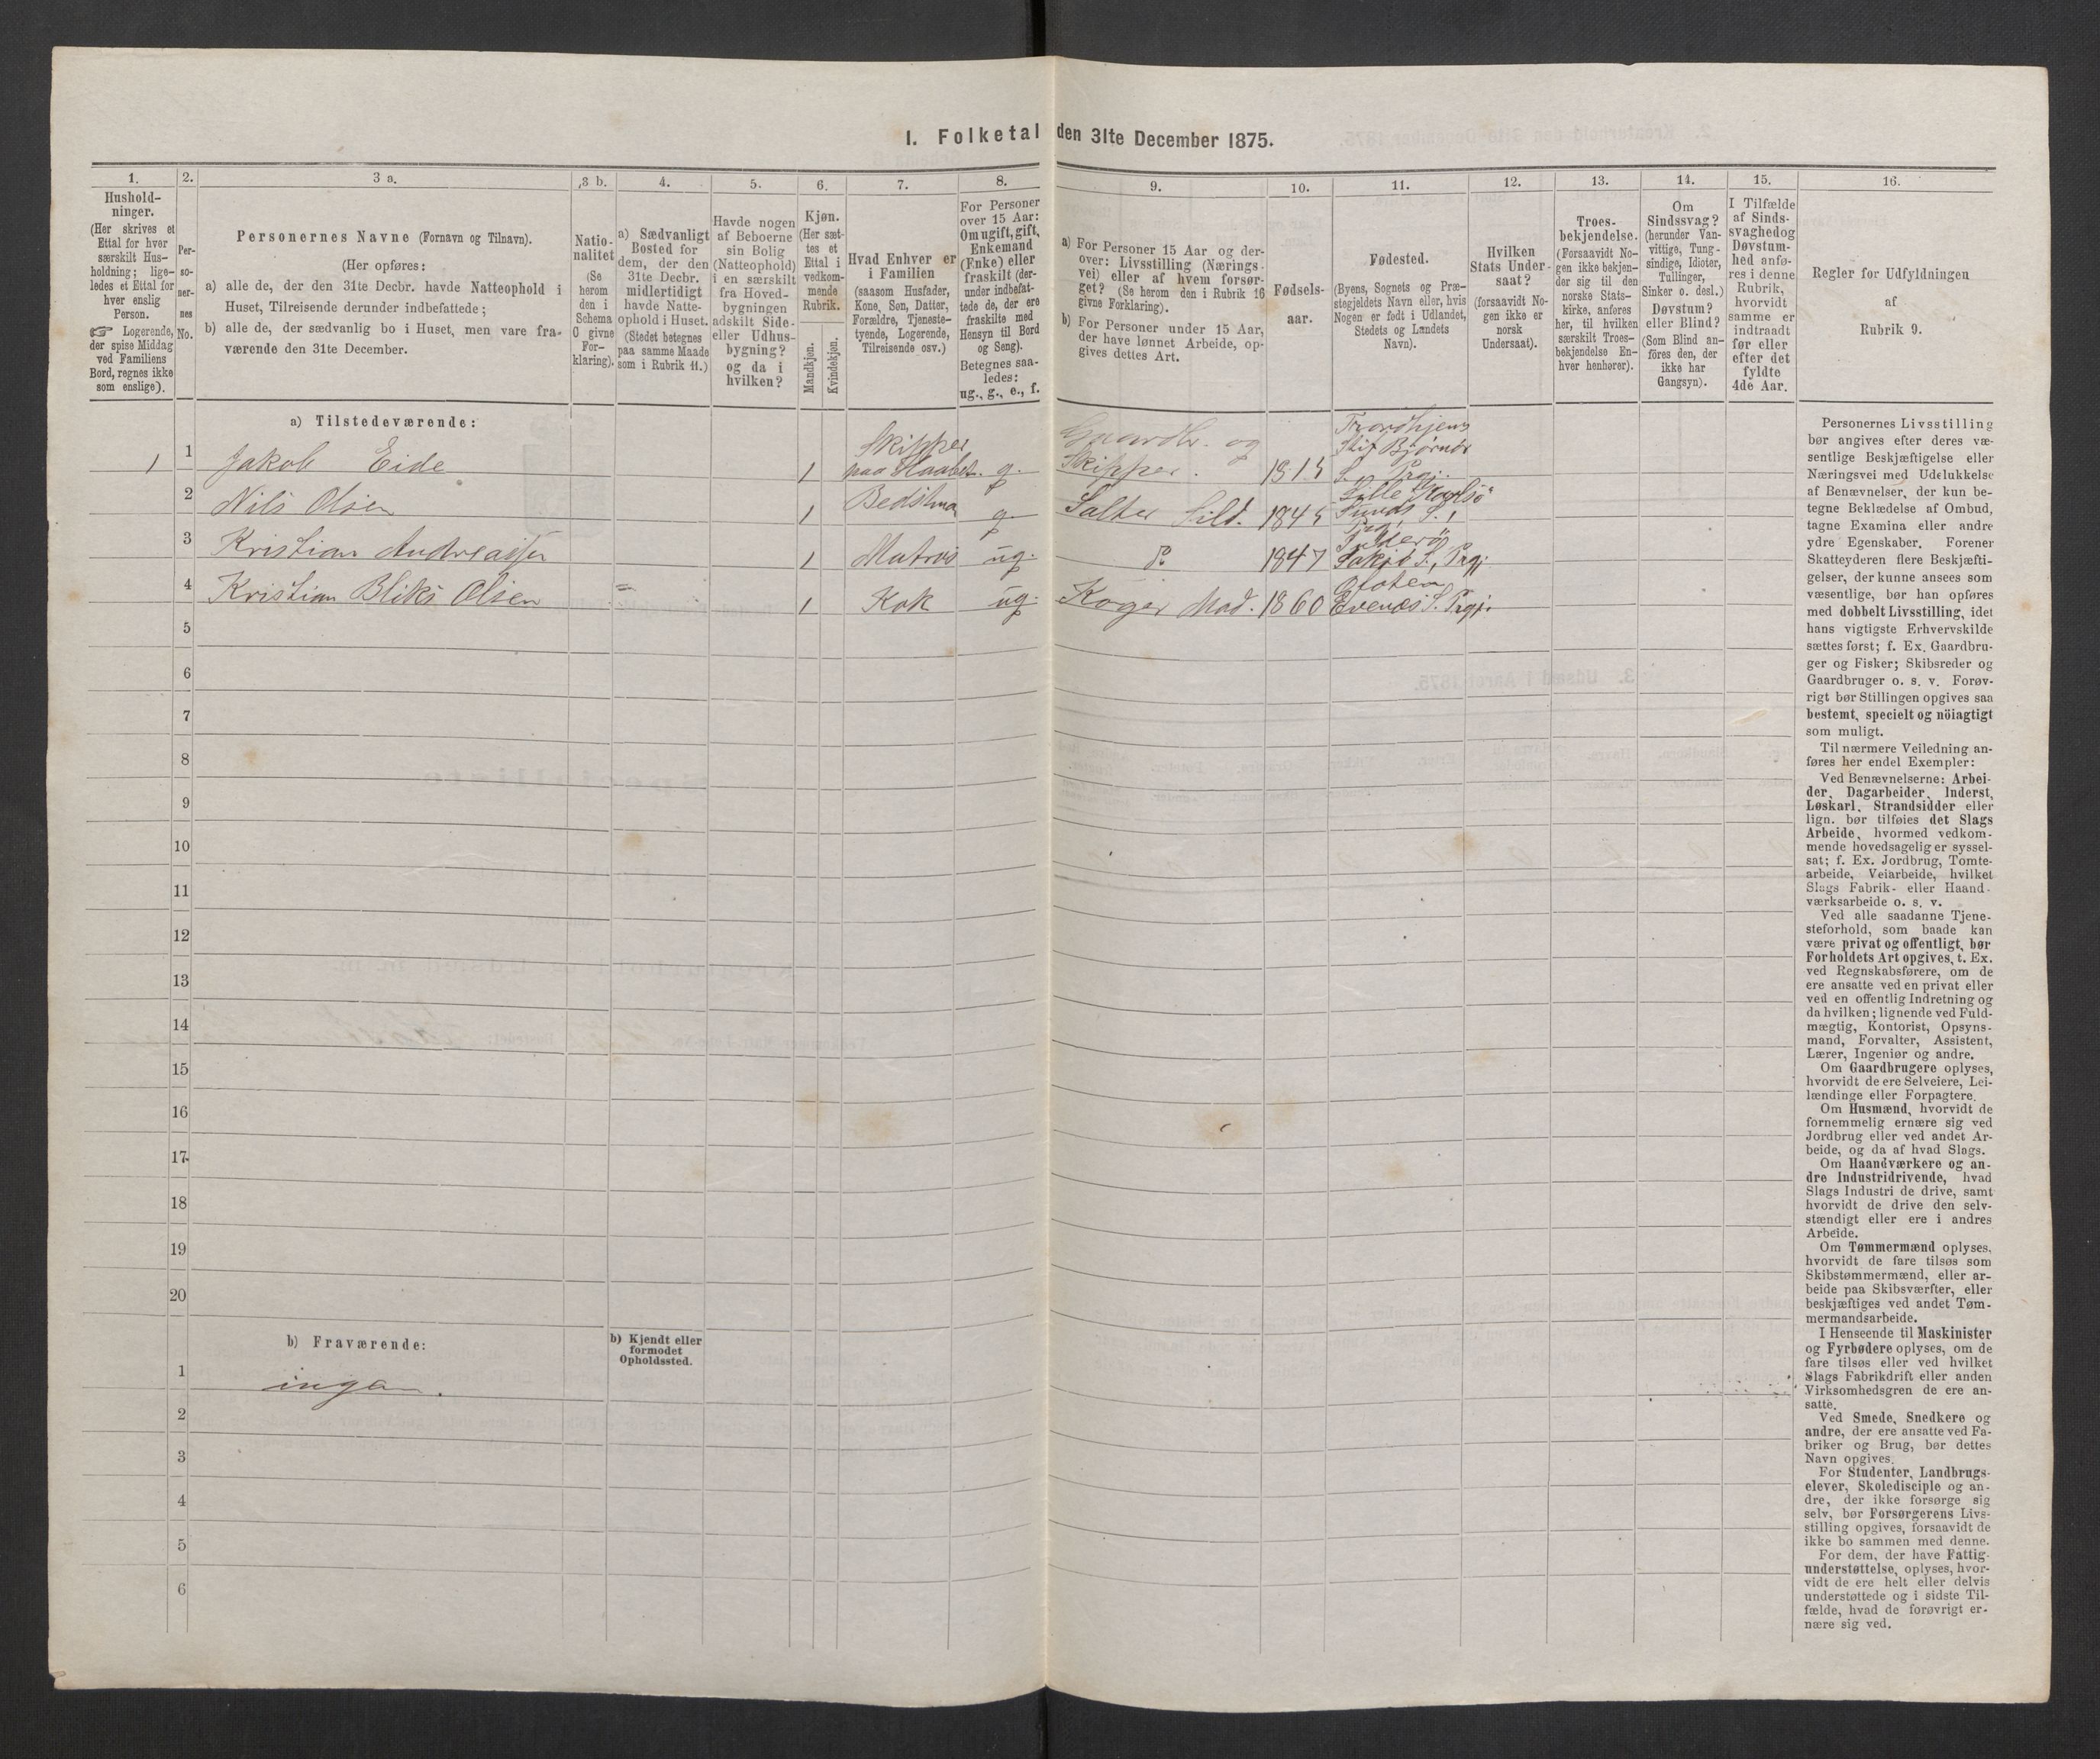 I. Folketal den 31te December 1875.
1.
Hushold-
ninger.
(Her skrives et
Ettal for hver
særskilt Hus-
holdning; lige-
ledes et Ettal for
hver enslig
Person.
☞ Logerende,
der spise Middag
ved Familiens
Bord, regnes ikke
som enslige).
2.
Per-
so-
ner-
nes
No.
3 a.
Personernes Navne (Fornavn og Tilnavn).
(Her opføres:
a) alle de, der den 31te Decbr. havde Natteophold i
Huset, Tilreisende derunder indbefattede;
b) alle de, der sædvanlig bo i Huset, men vare fra-
værende den 31te December.
3 b.
Natio-
nalitet
(Se
herom
den i
Schema
O givne
For-
klaring).
4.
a) Sædvanligt
Bosted for
dem, der den
31te Decbr.
midlertidigt
havde Natte-
ophold i Huset.
(Stedet betegnes
paa samme Maade
som i Rubrik 11.)
5.
Havde nogen
af Beboerne
sin Bolig
(Natteophold)
i en særskilt
fra Hoved-
bygningen
adskilt Side-
eller Udhus-
bygning?
og da i
hvilken?
6.
Kjøn.
(Her sæt-
tes et
Ettal i
vedkom-
mende
Rubrik.
Mandkjøn.
Kvindekjøn.
7.
Hvad Enhver er
i Familien
(saasom Husfader,
Kone, Søn, Datter,
Forældre, Tjeneste-
tyende, Logerende,
Tilreisende osv.)
8.
For Personer
over 15 Aar:
Om ugift, gift,
Enkemand
(Enke) eller
fraskilt (der-
under indbefat-
tede de, der ere
fraskilte med
Hensyn til Bord
og Seng).
Betegnes saa-
ledes:
ug., g., e., f.
9.
a) For Personer 15 Aar og der-
over: Livsstilling (Nærings-
vei) eller af hvem forsør-
get? (Se herom den i Rubrik 16
givne Forklaring).
b) For Personer under 15 Aar,
der have lønnet Arbeide, op-
gives dettes Art.
10.
Fødsels-
aar.
11.
Fødested.
(Byens, Sognets og Præ-
stegjeldets Navn eller, hvis
Nogen er født i Udlandet,
Stedets og Landets
Navn).
12.
Hvilken
Stats Under-
saat?
(forsaavidt No-
gen ikke er
norsk
Undersaat).
13.
Troes-
bekjendelse.
(Forsaavidt No-
gen ikke bekjen-
der sig til den
norske Stats-
kirke, anføres
her, til hvilken
særskilt Troes-
bekjendelse En-
hver henhører).
14.
Om
Sindssvag?
(herunder Van-
vittige, Tung-
sindige, Idioter,
Tullinger,
Sinker o. desl.)
Døvstum?
eller Blind?
(Som Blind an-
føres den, der
ikke har
Gangsyn).
15.
I Tilfælde
af Sinds-
svaghed og
Døvstum-
hed anfø-
res i denne
Rubrik,
hvorvidt
samme er
indtraadt
før eller
efter det
fyldte
4de Aar.
16.
Regler for Udfyldningen
af
Rubrik 9.
a) Tilstedeværende:
1 1 Jakob Eide 1 Skipper paa Haabet. g. Gaardbr. og Skipper. 1815 Trondhjems Stift Bjørnør S. Prgj.
2 Nils Olsen 1 Bedstmand g. Salter Sild. 1845 Lille Karlsø Sunds S., Prgj.
3 Kristian Andreassen 1 Matros ug. do 1847 Inderø Sakshs S., Prgj.
4 Kristian Bliks Olsen = 1 Kok ug. Koger Mad. 1860 Ofoten Evenæs S. Prgj.
5
6
7
8
9
10
11
12
13
14
15
16
17
18
19
20
b) Fraværende:
b) Kjendt eller
formodet
Opholdssted.
1 ingen.
2
3
4
5
6
Personernes Livsstilling
bør angives efter deres væ-
sentlige Beskjæftigelse eller
Næringsvei med Udelukkelse
af Benævnelser, der kun be-
tegne Beklædelse af Ombud,
tagne Examina eller andre
ydre Egenskaber. Forener
Skatteyderen flere Beskjæfti-
gelser, der kunne ansees som
væsentlige, bør han opføres
med dobbelt Livsstilling, idet
hans vigtigste Erhvervskilde
sættes først; f. Ex. Gaardbru-
ger og Fisker; Skibsreder og
Gaardbruger o. s. v. Forøv-
rigt bør Stillingen opgives saa
bestemt, specielt og nöiagtigt
som muligt.
Til nærmere Veiledning an-
føres her endel Exempler:
Ved Benævnelserne: Arbei-
der, Dagarbeider, Inderst,
Løskarl, Strandsidder eller
lign. bør tilføies det Slags
Arbeide, hvormed vedkom-
mende hovedsagelig er syssel-
sat; f. Ex. Jordbrug, Tomte-
arbeide, Veiarbeide, hvilket
Slags Fabrik- eller Haand-
værksarbeide o. s. v.
Ved alle saadanne Tjene-
steforhold, som baade kan
være privat og offentligt, bør
Forholdets Art opgives, t. Ex.
ved Regnskabsførere, om de
ere ansatte ved en privat eller
ved en offentlig Indretning og
da hvilken; lignende ved Fuld-
mægtig, Kontorist, Opsyns-
mand, Forvalter, Assistent,
Lærer, Ingeniør og andre.
Om Gaardbrugere oplyses,
hvorvidt de ere Selveiere, Lei-
lændinge eller Forpagtere.
Om Husmænd, hvorvidt de
fornemmelig ernære sig ved
Jordbrug eller ved andet Ar-
beide, og da af hvad Slags.
Om Haandværkere og an-
dre Industridrivende, hvad
Slags Industri de drive, samt
hvorvidt de drive den selv-
stændigt eller ere i andres
Arbeide.
Om Tømmermænd oplyses,
hvorvidt de fare tilsøs som
Skibstømmermænd, eller ar-
beide paa Skibsværfter, eller
beskjæftiges ved andet Tøm-
mermandsarbeide.
I Henseende til Maskinister
og Fyrbødere oplyses, om de
fare tilsøs eller ved hvilket
Slags Fabrikdrift eller anden
Virksomhedsgren de ere an-
satte.
Ved Smede, Snedkere og
andre, der ere ansatte ved Fa-
briker og Brug, bør dettes
Navn opgives.
For Studenter, Landbrugs-
elever, Skoledisciple og an-
dre, der ikke forsørge sig
selv, bør Forsørgerens Livs-
stilling opgives, forsaavidt de
ikke bo sammen med denne.
For dem, der have Fattig-
understøttelse, oplyses, hvor-
vidt de ere helt eller delvis
understøttede og i sidste Til-
fælde, hvad de forøvrigt er-
nære sig ved.